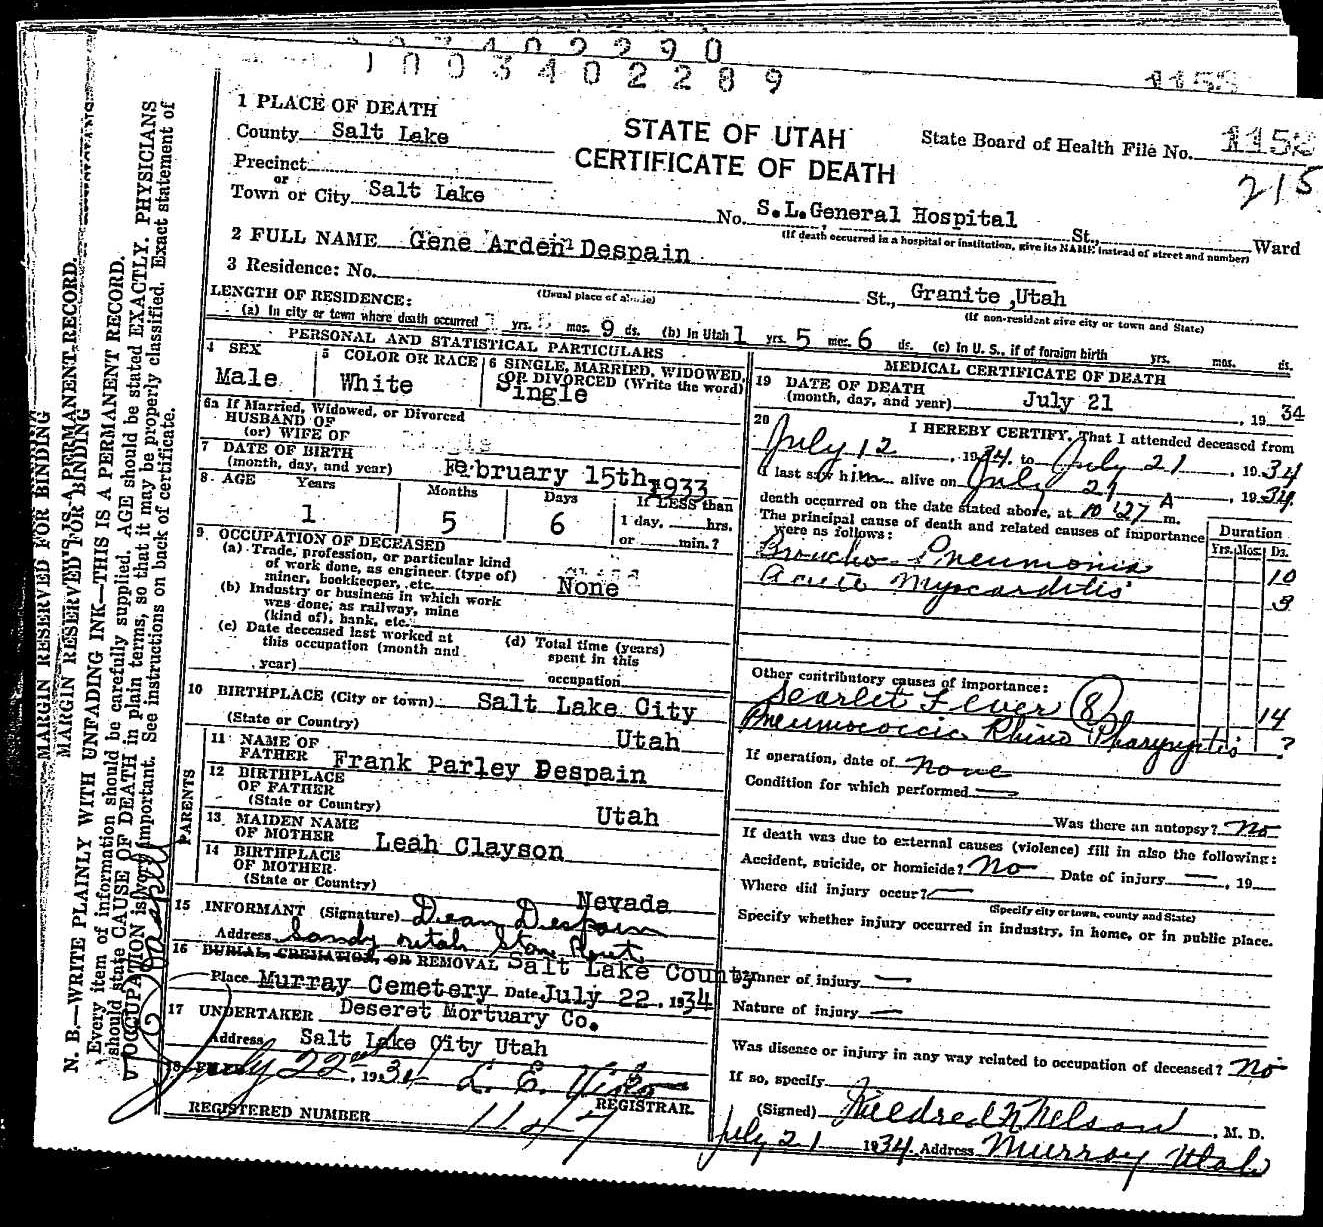 1003402289
1 PLACE OF DEATH
County Salt Lake
STATE OF UTAH
CERTIFICATE OF DEATH
State Board of Health File No. 1152
215
Precinct
or
Town or City Salt Lake No. S.L.General Hospital St., Ward
(If death occurred in a hospital or institution, give its NAME instead of street and number)
2 FULL NAME Gene Arden Despain
3 Residence: No. St., Granite, Utah
(Usual place of abode) (If non-resident give city or town and State)
LENGTH OF RESIDENCE:
(a) In city or town where death occurred yrs. mos. 9 ds. (b) In Utah 1 yrs. 5 mos. 6 ds. (c) In U. S., if of foreign birth yrs. mos. ds.
PERSONAL AND STATISTICAL PARTICULARS
4 SEX Male
5 COLOR OR RACE White
6 SINGLE, MARRIED, WIDOWED, OR DIVORCED (Write the word) Single
6a If Married, Widowed, or Divorced
HUSBAND OF
(or) WIFE OF
7 DATE OF BIRTH
(month, day, and year) February 15th, 1933
8. AGE Years Months Days If LESS than
1 5 6 1 day, hrs.
or min.?
9. OCCUPATION OF DECEASED
(a) Trade, profession, or particular kind
of work done, as engineer (type of)
miner, bookkeeper, etc. None
(b) Industry or business in which work
was done, as railway, mine
(kind of), bank, etc.
(c) Date deceased last worked at
this occupation (month and
year)
(d) Total time (years)
spent in this
occupation
10 BIRTHPLACE (City or town) Salt Lake City
(State or Country) Utah
PARENTS
11 NAME OF
FATHER Frank Parley Despain
12 BIRTHPLACE
OF FATHER
(State or Country) Utah
13 MAIDEN NAME
OF MOTHER Leah Clayson
14 BIRTHPLACE
OF MOTHER
(State or Country) Nevada
15 INFORMANT (Signature) Dean Despain
Address Sandy Utah
16 BURIAL, CREMATION, OR REMOVAL Salt Lake County
Place Murray Cemetery Date July 22, 1934
17 UNDERTAKER Deseret Mortuary Co.
Address Salt Lake City Utah
July 22nd, 1934
REGISTRAR.
REGISTERED NUMBER 1147
MEDICAL CERTIFICATE OF DEATH
19 DATE OF DEATH
(month, day, and year) July 21, 1934
20 I HEREBY CERTIFY, That I attended deceased from
July 12, 1934, to July 21, 1934
I last saw him alive on July 21, 1934,
death occurred on the date stated above, at 10:27 A m.
The principal cause of death and related causes of importance
were as follows: Duration
Yrs. Mos. Ds.
Broncho Pneumonia 10
Acute Myocarditis 3
Other contributory causes of importance:
Scarlet Fever (8) 14
Pneumococcic Rhino Pharyngitis ?
If operation, date of None
Condition for which performed —
Was there an autopsy? No
If death was due to external causes (violence) fill in also the following:
Accident, suicide, or homicide? No Date of injury —, 19
Where did injury occur? —
(Specify city or town, county and State)
Specify whether injury occurred in industry, in home, or in public place.
Manner of injury —
Nature of injury —
Was disease or injury in any way related to occupation of deceased? No
If so, specify
(Signed) Mildred N Nelson, M. D.
July 21 1934 Address Murray Utah
MARGIN RESERVED FOR BINDING
N. B.—WRITE PLAINLY WITH UNFADING INK—THIS IS A PERMANENT RECORD.
Every item of information should be carefully supplied. AGE should be stated EXACTLY. PHYSICIANS
should state CAUSE OF DEATH in plain terms, so that it may be properly classified. Exact statement of
OCCUPATION is very important. See instructions on back of certificate.